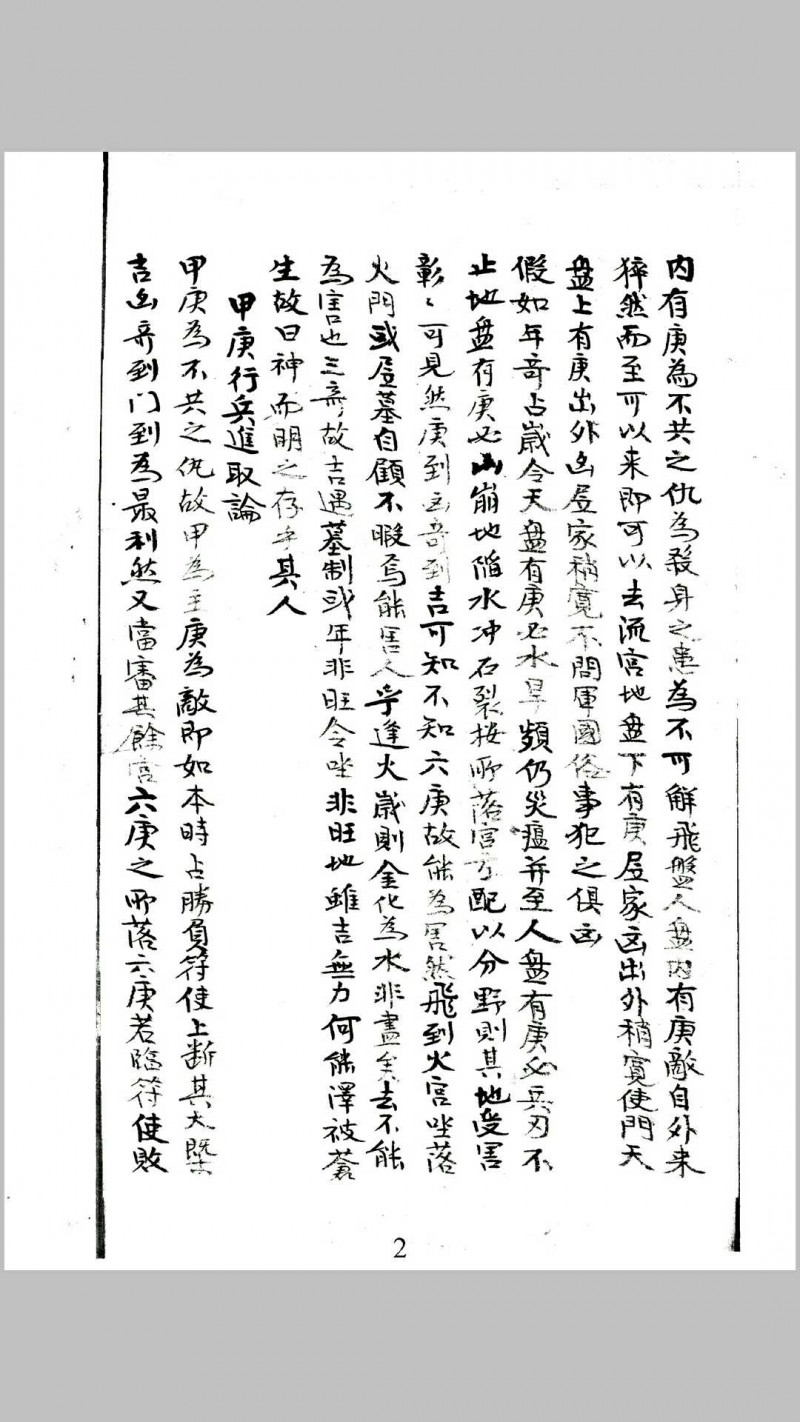 内有庚為不共之仇為殺身之患為不可解飛盤人盤内有庚敵自外来
猝然而至可以来即可以去流宫地盤下有庚居家凶出外稍寛使門天
盤上有庚出外凶居家稍寛不問軍國俗事犯之俱凶
假如年奇占歲令天盤有庚必水旱頻仍災瘟并至人盤有庚必兵刃不
止地盤有庚必山崩地陷水冲石裂按所落宫方配以分野則其地受害
彰〻可見然庚到凶奇到吉可知不知六庚故能為害然飛到火宫坐落
火門或居墓自顧不暇焉能害人乎逢火歲則金化為水非盡矣去不能
為害也三奇故吉遇墓制或年非旺令坐非旺地雖吉無力何能澤被蒼
生故曰神而明之存乎其人
甲庚行兵進取論
甲庚為不共之仇故甲為主庚為敵即如本時占勝負符使上断其大槩
吉凶奇到门到為最利然又當審其餘宫六庚之所落六庚若臨符使敗
2